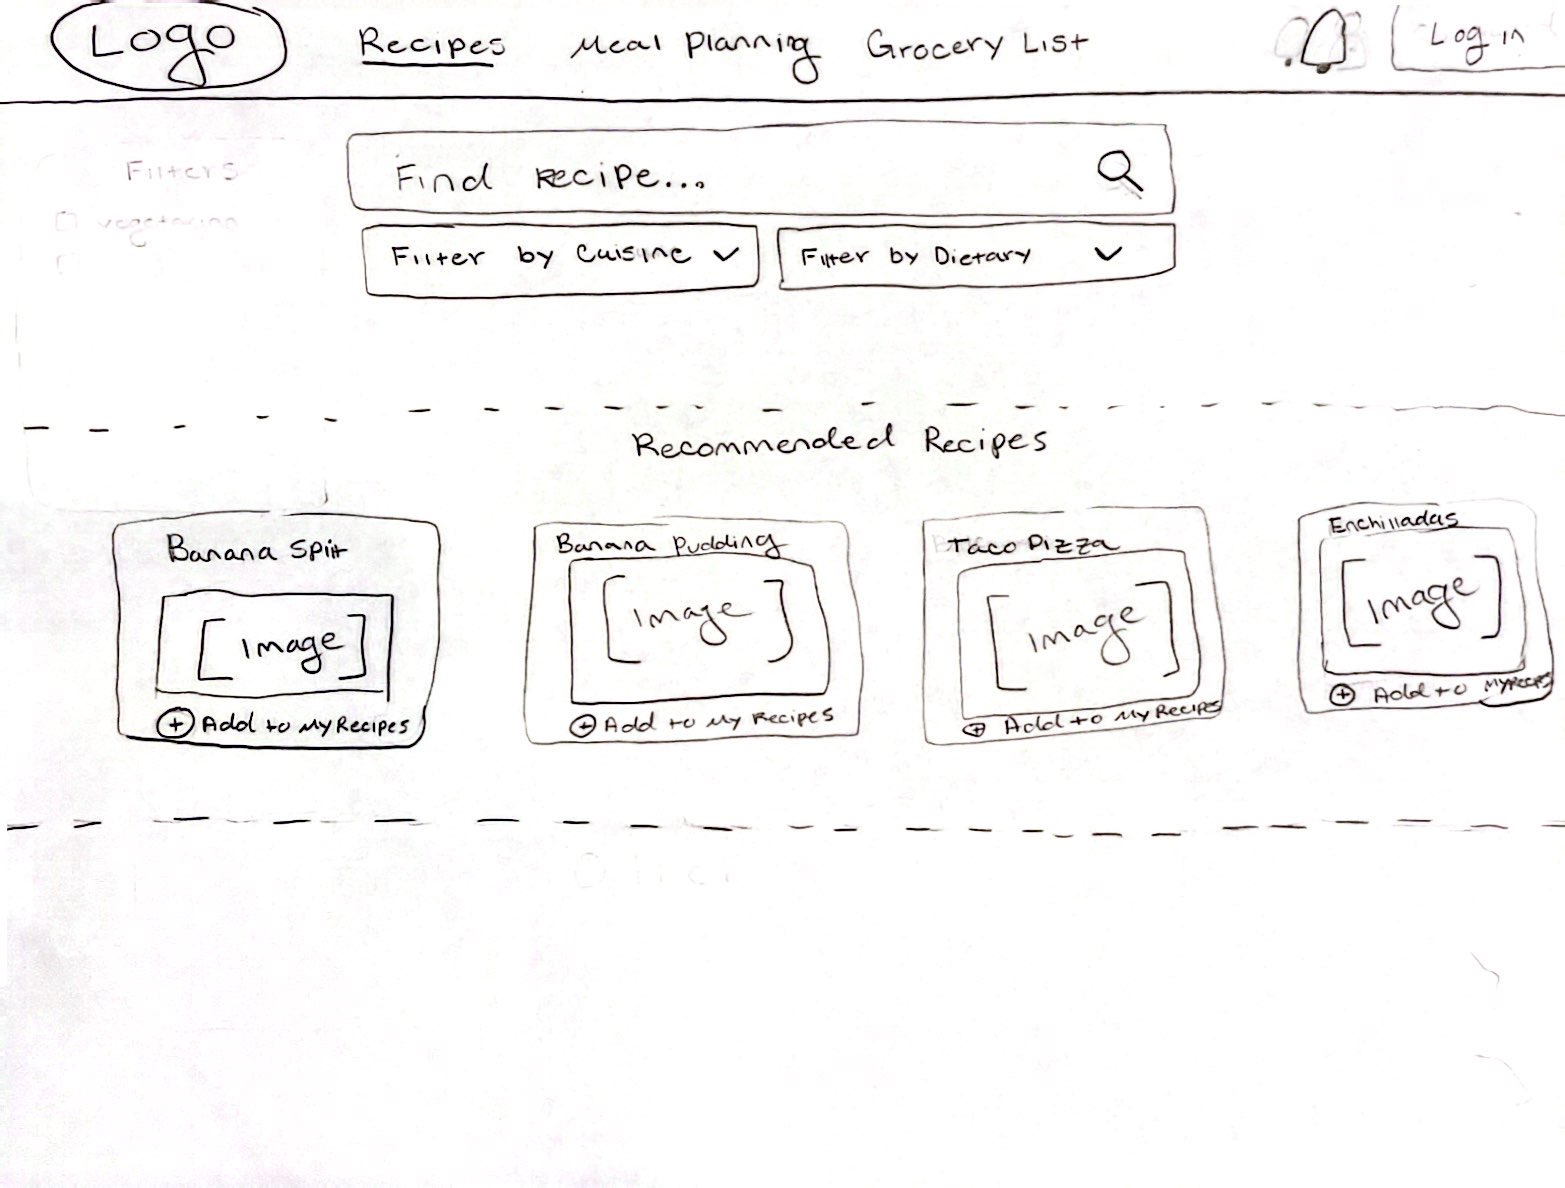 Logo Recipes Meal Planning Grocery List Log in
Filters
vegetarian
Find recipe...
Filter by Cuisine Filter by Dietary
Recommended Recipes
Banana Split
[Image]
Add to My Recipes
Banana Pudding
[Image]
Add to My Recipes
Taco Pizza
[Image]
Add to My Recipes
Enchilladas
[Image]
Add to My Recipes